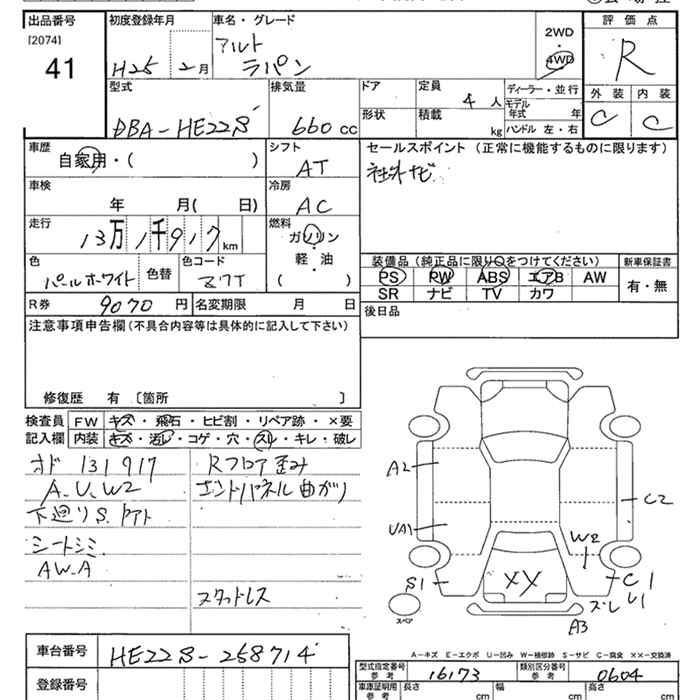 出品番号 初度登録年月 車名・グレード 評価点
[2074]
41
H25 2月
アルト
ラパン
2WD
4WD
R
外装 内装
C C
型式 排気量 ドア 定員 4人 ディーラー・並行
DBA-HE22S 660cc 形状 積載 kg
モデル年式 年
ハンドル 左・右
車歴 シフト セールスポイント (正常に機能するものに限ります)
自家用・( ) AT
社外ナビ
車検 冷房
年 月( 日) AC
走行 燃料
13万1千917km ガソリン
軽・油
( )
色 色替 色コード
パールホワイト
装備品(純正品に限り○をつけてください) 新車保証書
PS PW ABS エアB AW 有・無
SR ナビ TV カワ
R券 9070円 名変期限 月 日
後日品
注意事項申告欄(不具合内容等は具体的に記入して下さい)
修復歴 有 〔箇所 〕
検査員 FW キズ・飛石・ヒビ割・リペア跡・×要
記入欄 内装 キズ・汚レ・コゲ・穴・スレ・キレ・破レ
オド 131917
A.U.W2
下廻りS.
シートシミ.
AW.A
Rフロア歪み
エンドパネル曲がり
スタッドレス
A2
C2
UA1
W2
S1
XY
C1
ズレ U1
A3
スペア
A-キズ E-エクボ U-凹み W-補修跡 S-サビ C-腐食 XX-交換済
車台番号 HE22S-258714
登録番号
型式指定番号 参考 16173 類別区分番号 参考 0604
車庫証明用 参考 長さ cm 幅 cm 高さ cm